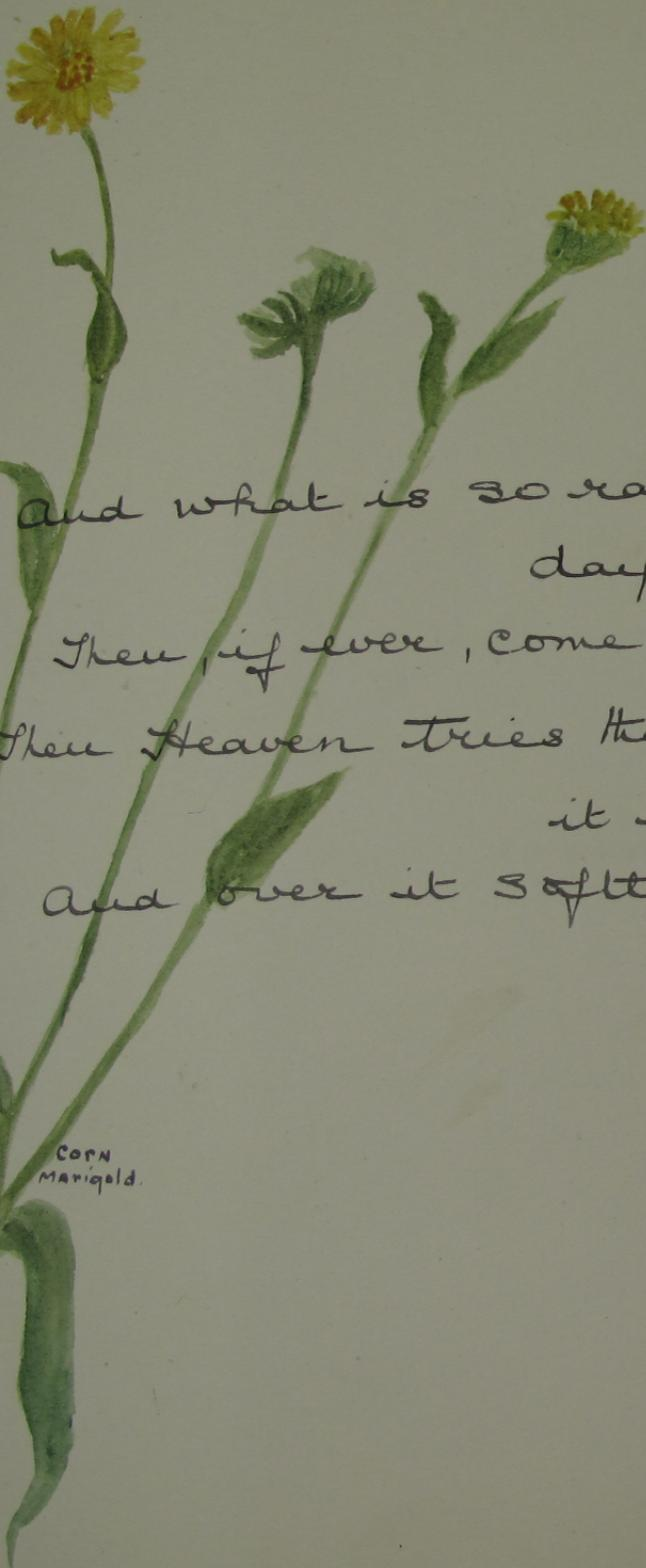 And what is so ra
day
Then, if ever, come
Then Heaven tries the
it
And over it softl
Corn
Marigold.